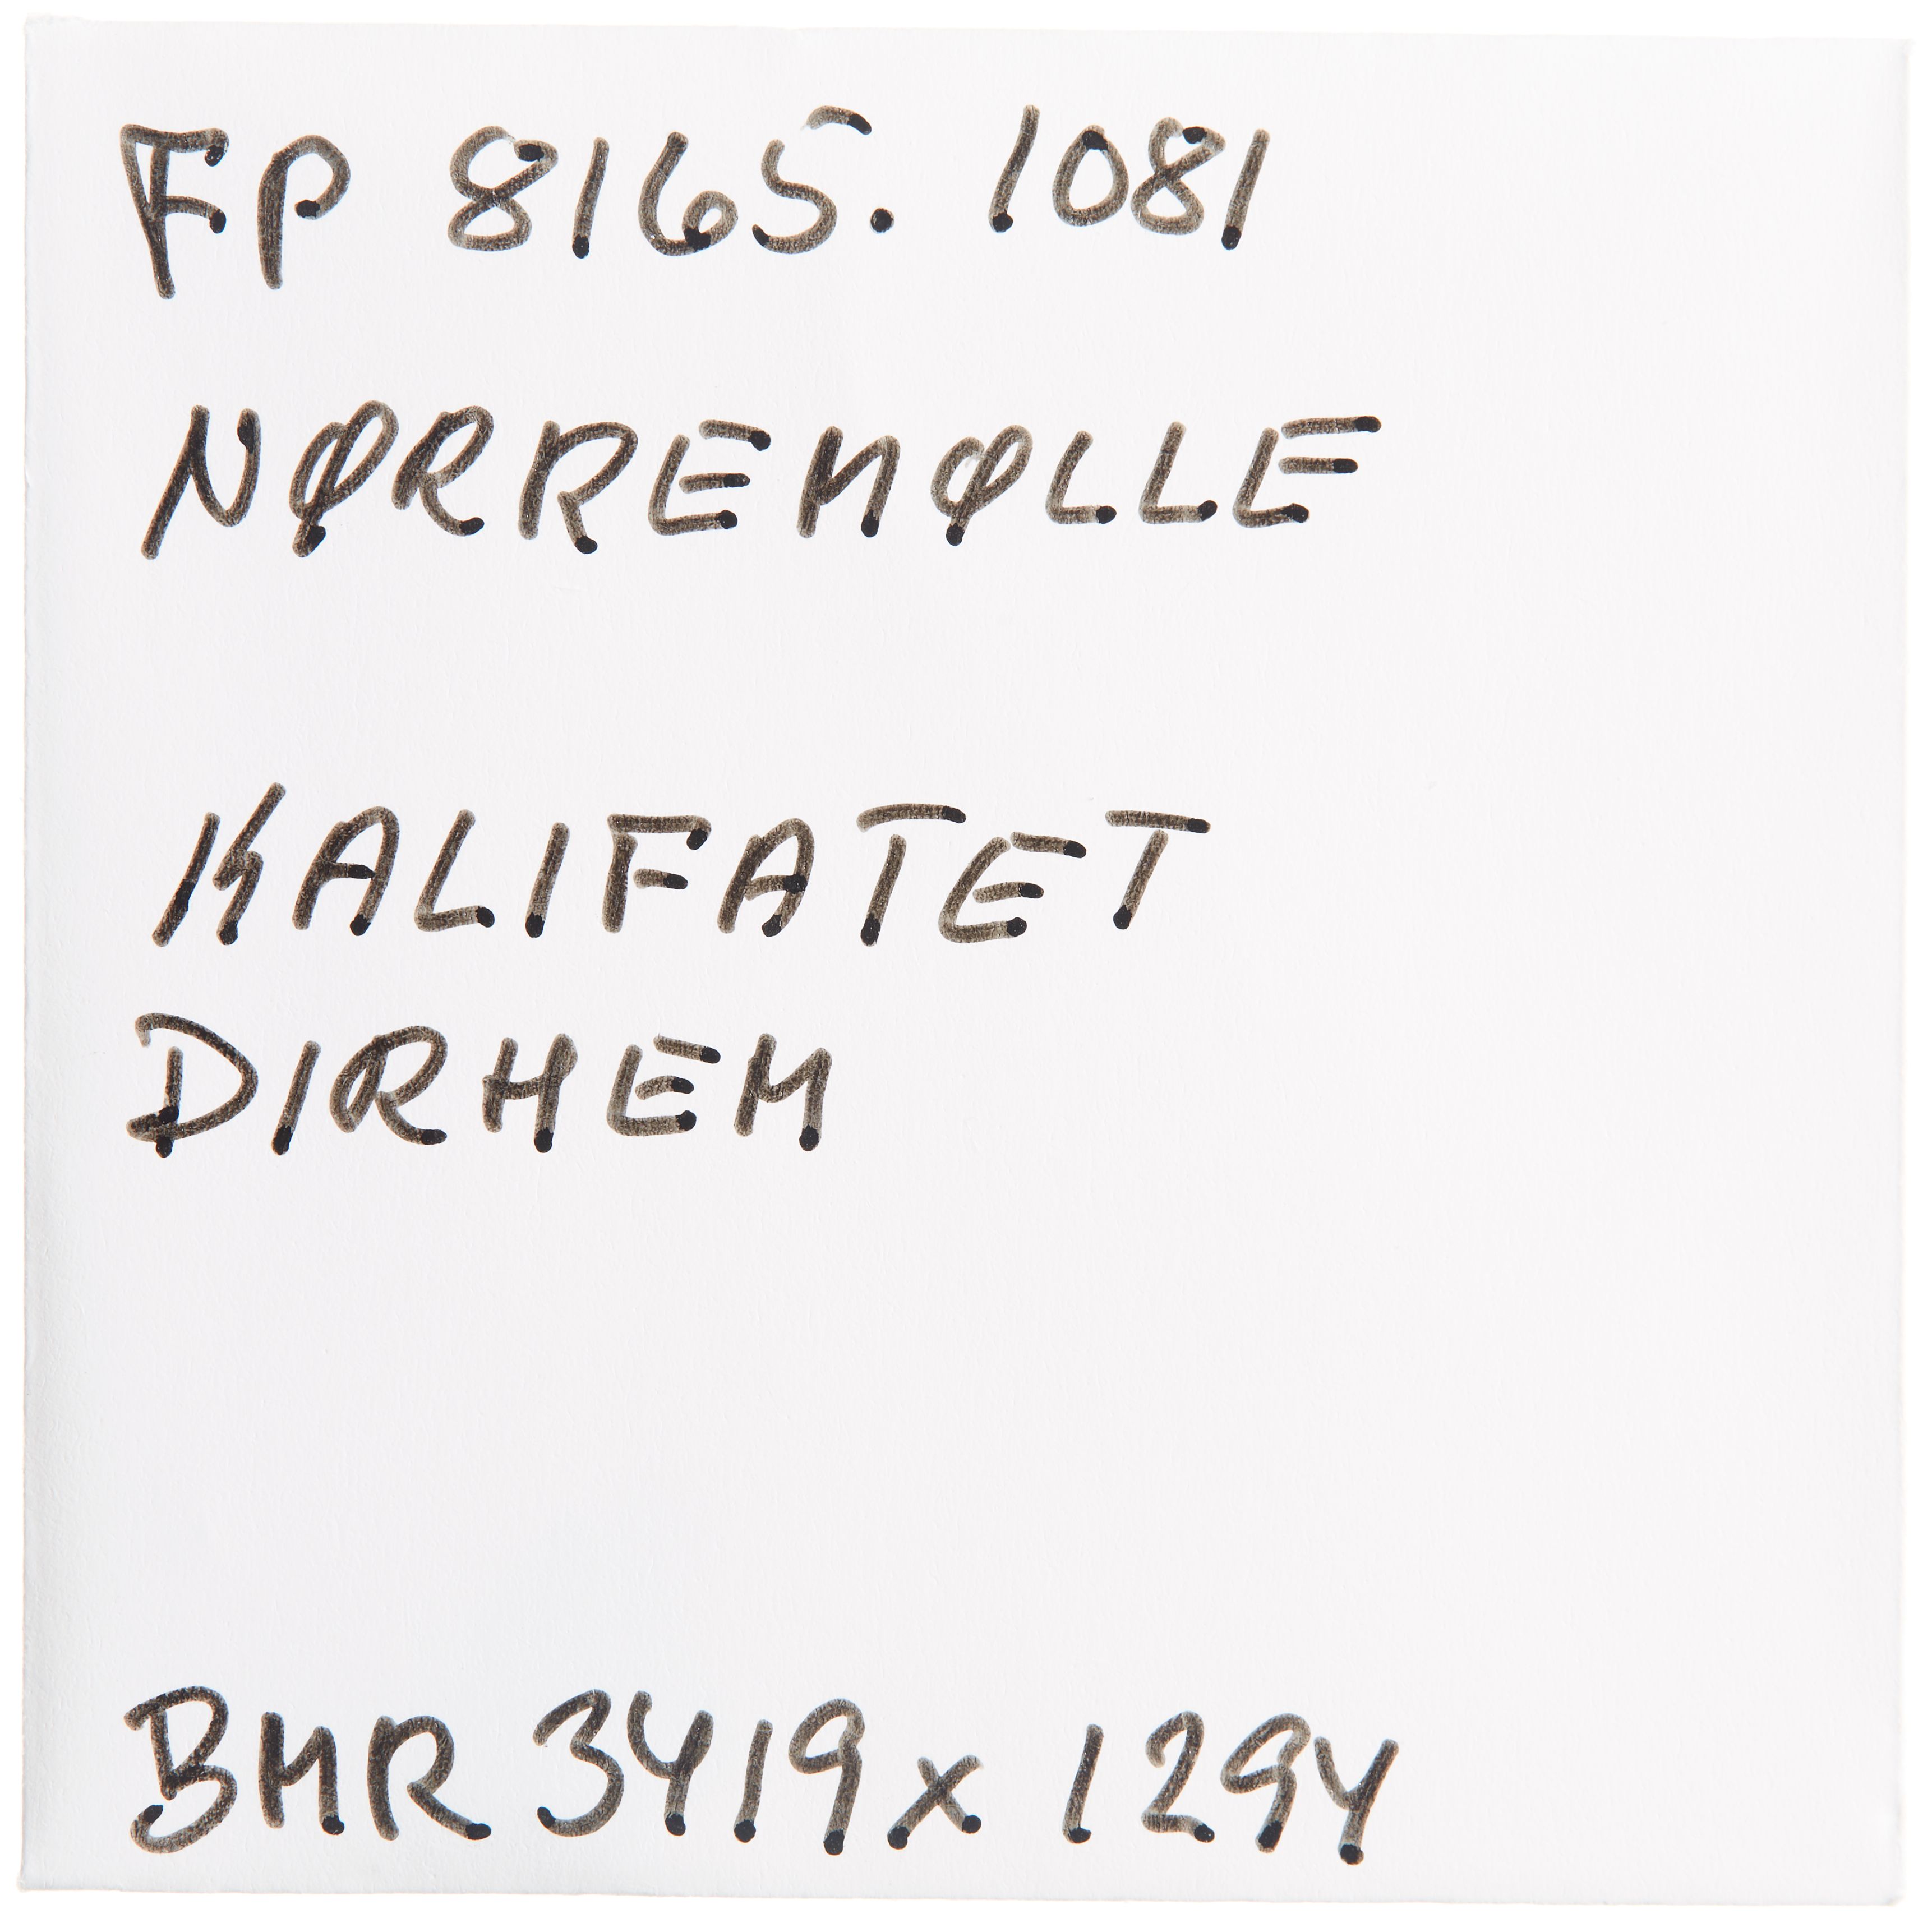 FP 8165. 1081
NØRREMØLLE
KALIFATET
DIRHEM
BMR 3419x1294